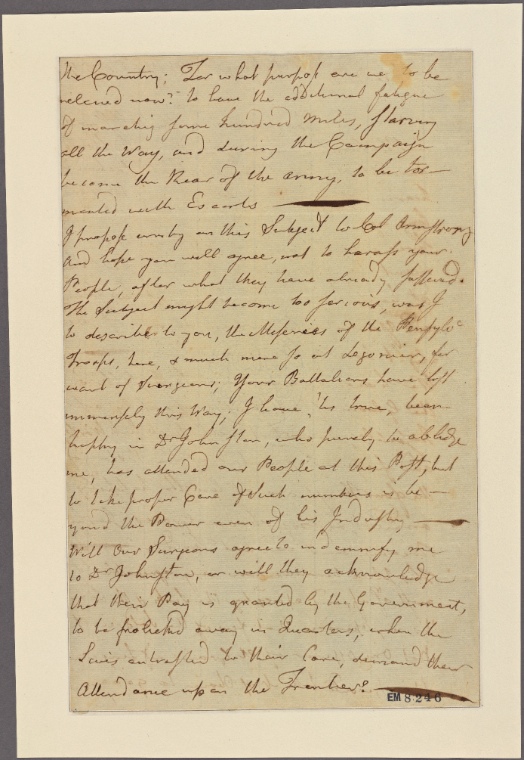 the Country; For what purpose are we to be
relieved now? to have the additional fatigue
of marching some hundred Miles, starving
all the Way, and during the Campaign
become the Rear of the Army, to be tor-
mented with Escorts
I propose writing on this Subject to Col Armstrong
And hope you will agree, not to harass your
People, after what they have already suffered.
The Subject might become too serious, was I
to describe to you, the Miseries of the Pensylv
Troops, here, & much more so at Legonier, for
want of Surgeons; Your Battalions have lost
immensely this Way; I have, 'tis true, been
happy in Dr Johnston, who purely to oblidge
me, has attended our People at this Post, but
to take proper Care of such numbers is be-
yond the Power even of his Industry
Will Our Surgeons agree to indemnify me
to Dr Johnston, or will they acknowledge
that their Pay is granted by the Government,
to be frolicked away in Quarters, when the
Lives entrusted to their Care, demand their
Attendance upon the Frontier?
EM 8246